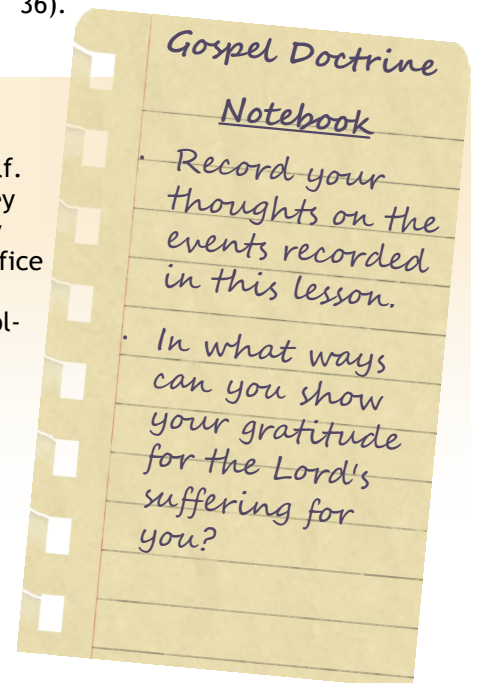 36).
lf.
ey
fice
ol-
Gospel Doctrine
Notebook
· Record your
thoughts on the
events recorded
in this lesson.
· In what ways
can you show
your gratitude
for the Lord's
suffering for
you?